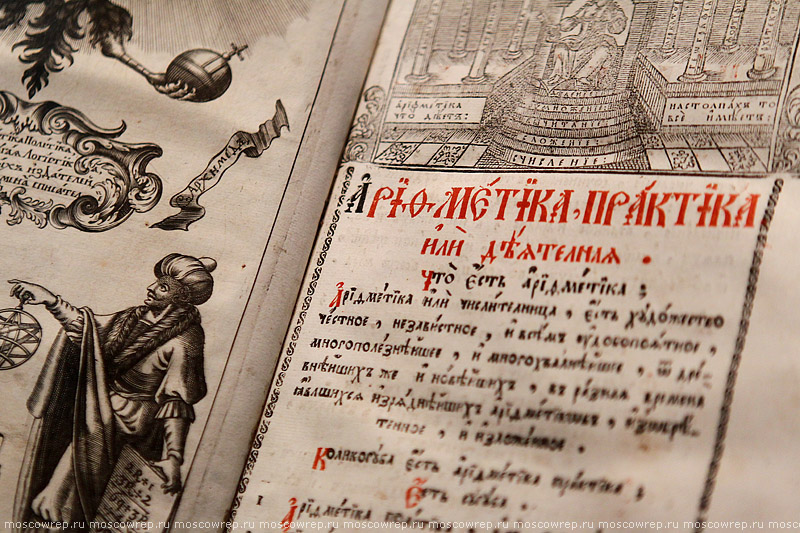 АРХИМЕДЪ
АРІѲМЕТІКА
ЧТО ДѢЕТЪ:
НА СТОЛПАХЪ ТО
ВСЕ ИМѢЕТЪ:
СЧИТАНІЕ
СЛОЖЕНІЕ
СЧИСЛЕНІЕ:
АРІѲМЕ́ТІКА ПРА́КТІКА
ИЛЍ ДѢ́ЯТЕЛНАЯ .
Что̀ є҆́сть а҆рїѳме́тїка ;
Арїѳме́тїка и҆лѝ числи́телница , є҆́сть художество
че́стное , незави́стное , и҆ всѣ̑мъ ᲂу҆добопоѧ́тное ,
многополе́знѣйшее , и҆ многохва́лнѣйшее , ѿ дре́-
внѣйшихъ же и҆ новѣ́йшихъ , въ ра̑знаѧ времена̀
ꙗ҆ви́вшихсѧ и҆зрѧ́днѣйшихъ а҆рїѳме́тїкѡвъ , и҆з̾ѡбрѣ́-
тенное , и҆ и҆зложе́нное .
Коликогꙋ́ба є҆́сть а҆рїѳме́тїка пра́ктїка ;
Є҆́сть сꙋгꙋ́ба .
1
Арїѳме́тїка
moscowrep.ru moscowrep.ru moscowrep.ru moscowrep.ru moscowrep.ru moscowrep.ru moscowrep.ru moscowrep.ru moscowrep.ru